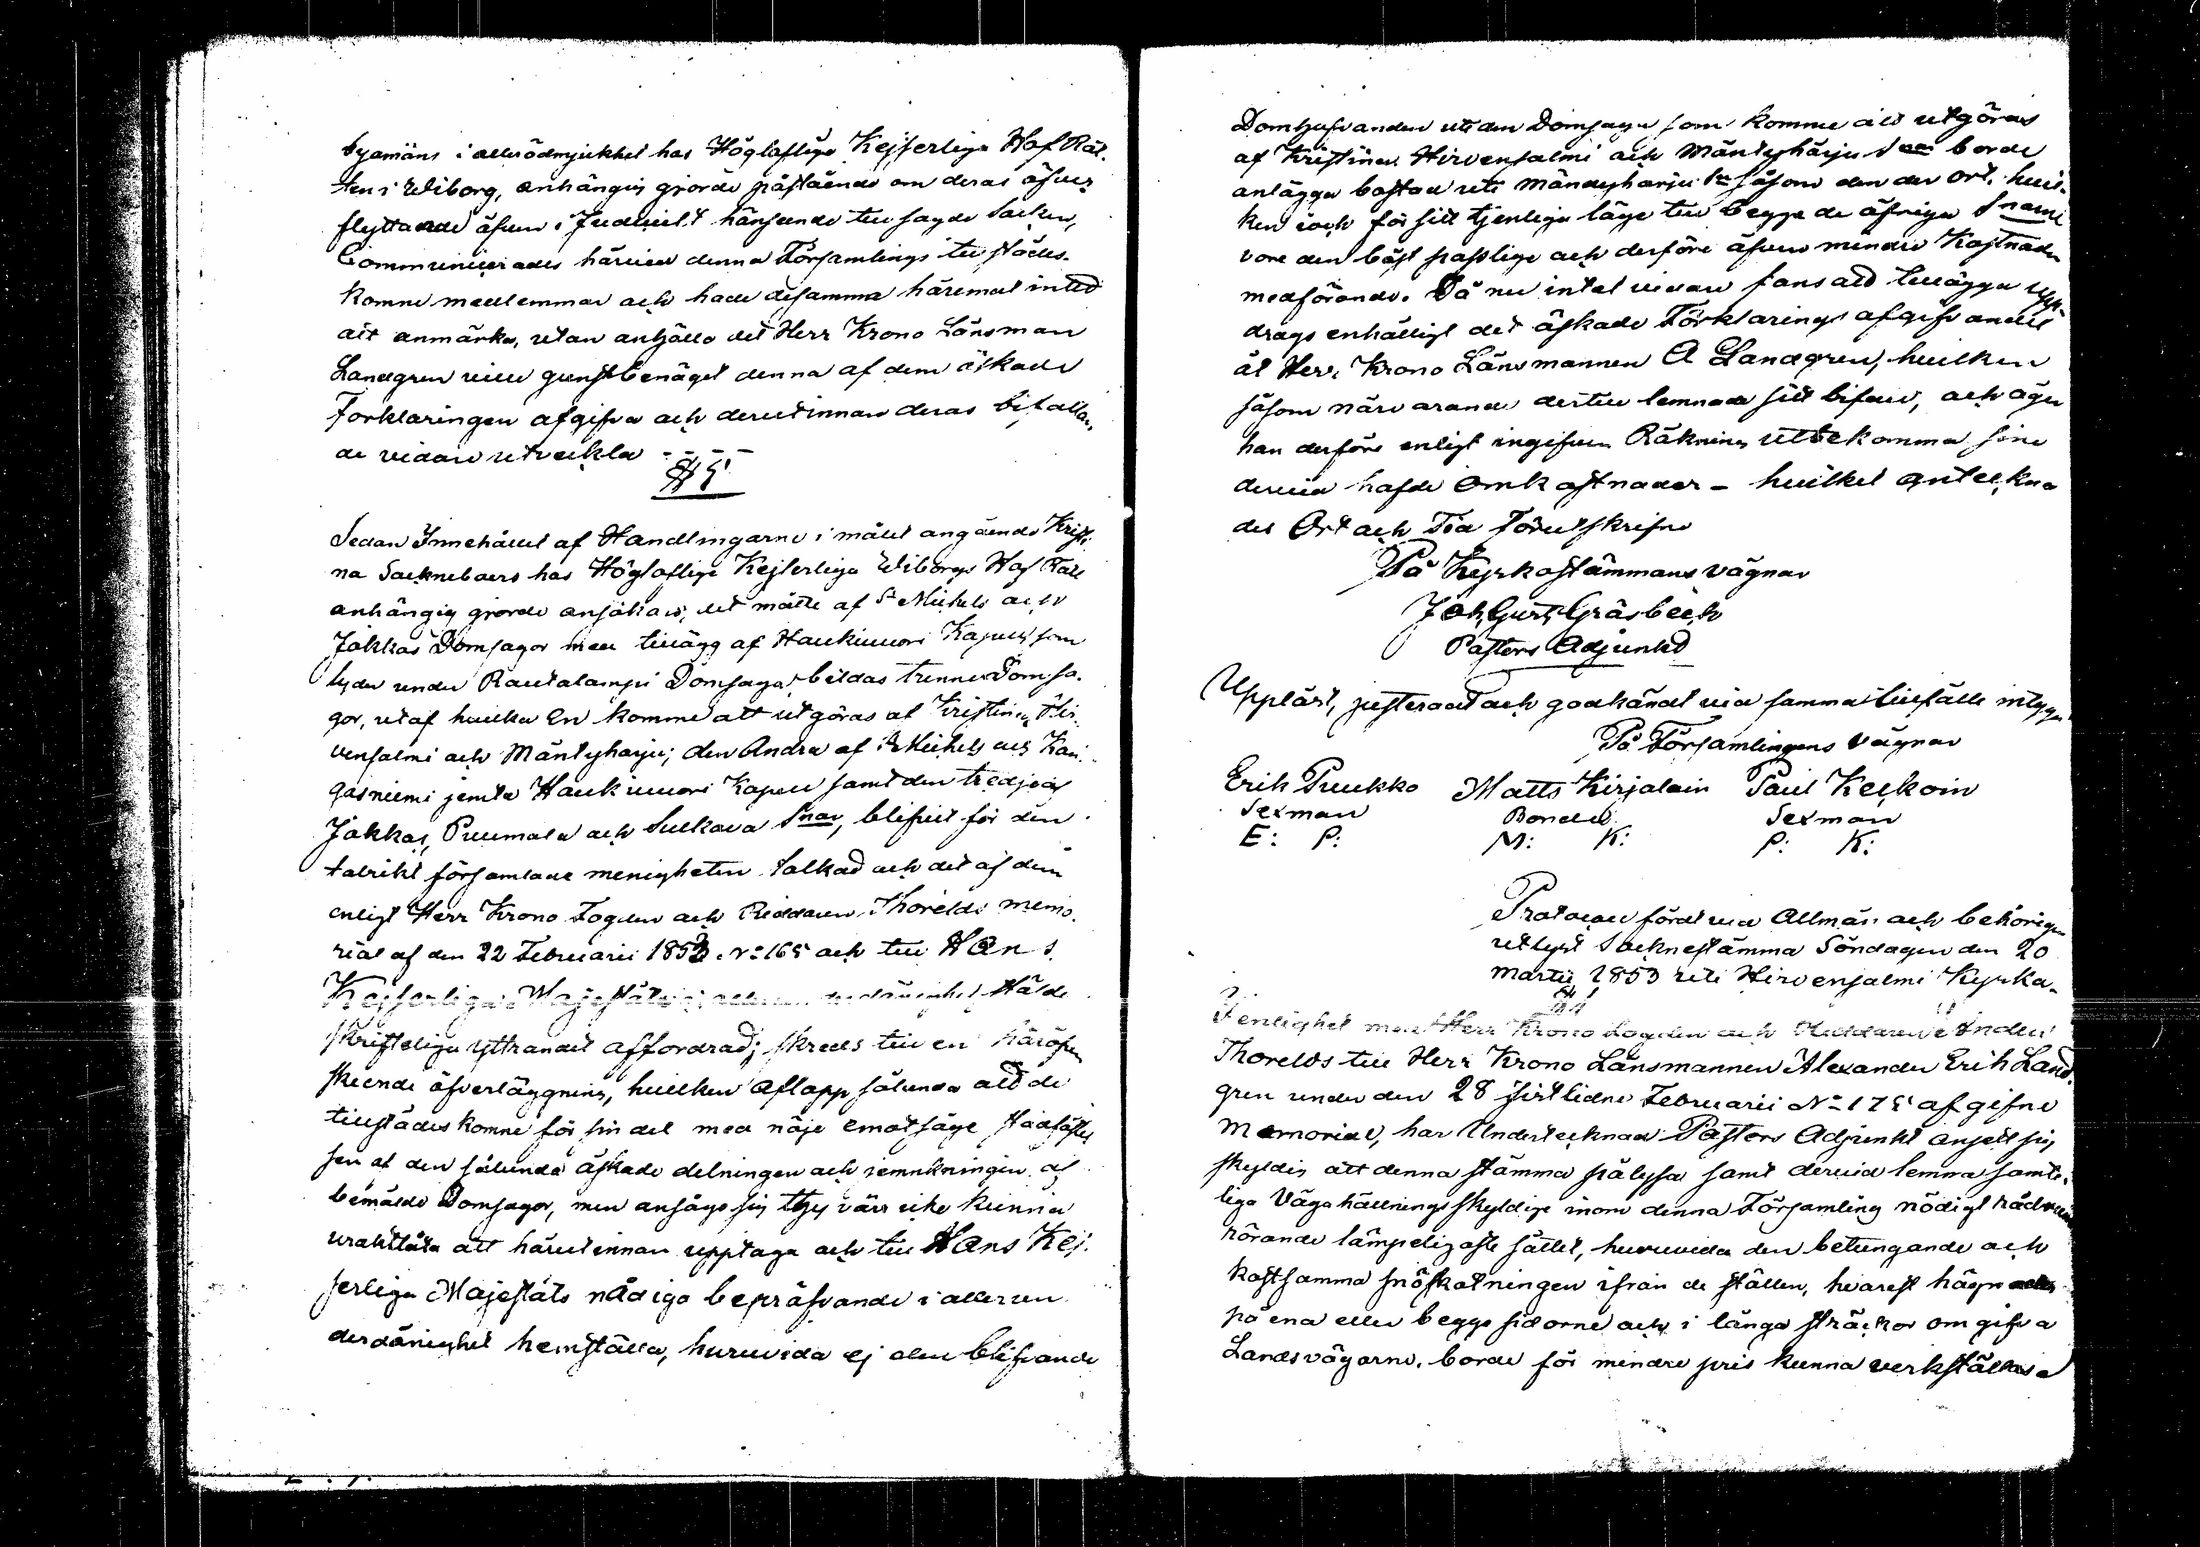 byamäns i allerödmjukhet hos Högloflige Kejserlige Hof Rät-
ten i Wiborg, anhängig gjorde påstående om deras öfver
flyttande äfven i Judiciilt hänseende till sagde Socken,
Communicerades härmed denna Församlings till städes-
komne medlemmar och hade desamma häremot intet
att anmärka, utan anhålla det Herr Krono Länsman
Landgren ville gunstbenäget denna af dem äskade
Förklaringen afgifva och derutinnan deras bifallan-
de vidare utveckla - - - -
§ 5
Sedan Innehållet af Handlingarne i målet angående Kristi-
na Sockneboers hos Högloflige Kejserliga Wiborgs Hof Rätt
anhängig gjorde ansökan, det måtte af St Michels och
Jokkas Domsagor med tillägg af Haukivuori Kapell som
lyder under Rautalampi Domsaga, bildas trenne Domsa-
gor, utaf hvilka En komme att utgöras af Kristina, Hir-
vensalmi och Mäntyharju; den Andra af St Michels och Kan-
gasniemi jemte Haukivuori Kapell samt den tredje af
Jokkas, Puumala och Sulkava Snar, blifvit för den
talrikt församlade menigheten tolkad och det af dem
enligt Herr Krono Fogden och Riddaren Thorelds memo-
rial af den 22 Februarii 1853 No 165 och till Hans
Kejserliga Majestäts i underdånighet stälde
skrifteliga yttrandet affordrad; skreds till en häröfver
skeende öfverläggning, hvilken aflopp sålunda att de
tillstädeskomne för sin del med nöje emotsågo Stadfästel-
sen af den sålunda äskade delningen och jemnkningen af
bemälde Domsagor, men ansågo sig thy värr icke kunna
uraktlåta att härutinnan upptaga och till Hans Kej-
serliga Majestäts nådiga bepröfvande i allerun
derdånighet hemställa, huruvida ej den blifvande
Domhafvanden uti den Domsaga som komme att utgöras
af Kristina Hirvensalmi och Mäntyharju Snar borde
anlägga bostad uti Mäntyharju Sn såsom den der ort, hvil-
ken och för sitt tjenliga läge till begge de öfriga Snarne
vore den bäst passlige och derföre äfven mindre Kostnader
medförande. Då nu intet vidare fans att tillägga upp-
drogs enhälligt det äskade Förklarings afgifvandet
åt Herr Krono Länsmannen A Landgren, hvilken
såsom närvarande dertill lemnade sitt bifall, och äger
han derföre enligt ingifven Räkning utbekomma sine
dervid hafde Omkostnader - hvilket anteckna
des Ort och Tid Förutskrifne
På Kyrkostämmans vägnar
Joh. Gust. Gråsbeck
Pastors Adjunkt
Uppläst, justeradt och godkändt vid samma tillfälle intyga
På Församlingens vägnar
Erik Puukko Matts Kirjalain Paul Keckoin
Sexman Bonde Sexman
E: P: M: K: P: K:
Protocoll fördt vid Allmän och behörigen
utlyst Socknestämma Söndagen den 20
Martii 1853 uti Hirvensalmi Kyrka.
§ 1
I enlighet med Herr Krono Fogden och Riddaren
Thorelds till Herr Krono Länsmannen Alexander Erik Land-
gren under den 28 sistlidne Februarii No 175 afgifne
Memorial, har Undertecknad Pastors Adjunkt ansett sig
skyldig att denna stämma pålysa samt dervid lemna samte-
liga Väghållningsskyldige inom denna Församling nödigt rådrum
rörande lämpeligaste sättet, huruvida den betungande och
kostsamma snöskotningen ifrån de ställen, hvarest hägnader
på ena eller begge sidorne och i långa sträckor omgifva
Landsvägarne, borde för mindre pris kunna verkställas